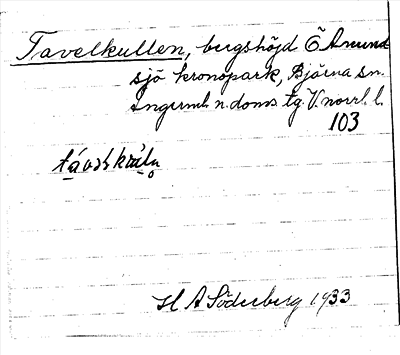 Tavelkullen, bergshöjd Ö Amund
sjö kronopark, Björna sn.
Ångerml. n. doms. tg. V. norrl. l.
103
H A Söderberg 1933